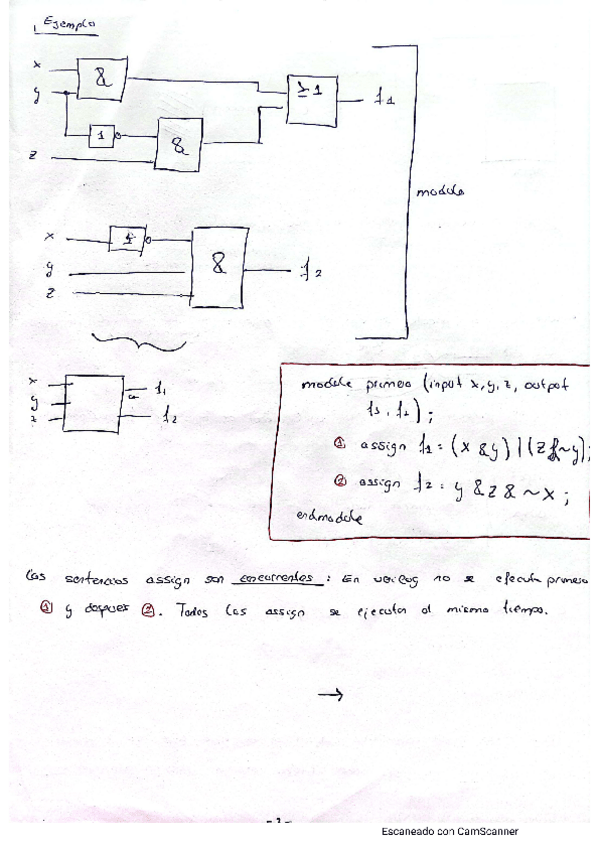 Ejemplo
x
&
y
≥1
f1
1
&
z
module
x
1
y
&
f2
z
x
f1
y
z
f2
module primero (input x, y, z, output
f1, f2);
① assign f1 = (x & y) | (z & ~y);
② assign f2 = y & z & ~x;
endmodule
Las sentencias assign son concurrentes: En verilog no se ejecuta primero
① y despues ②. Todos los assign se ejecutan al mismo tiempo.
→
Escaneado con CamScanner